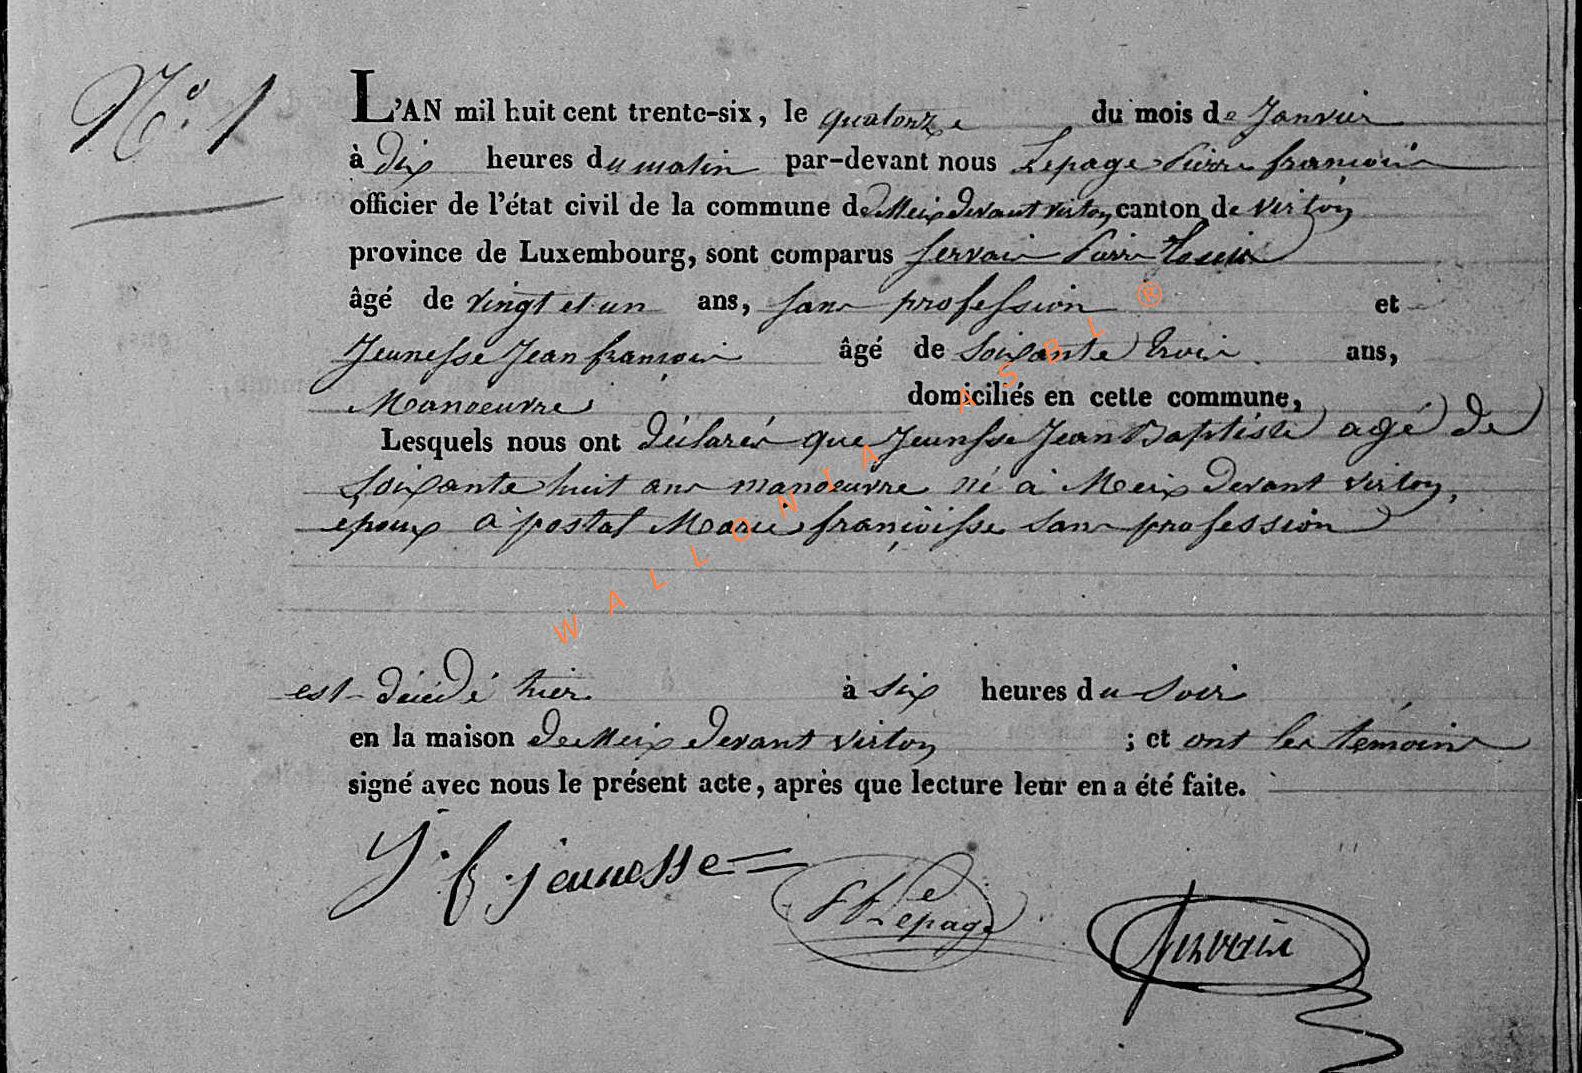 N.º 1
L'AN mil huit cent trente-six, le quatorze du mois de Janvier
à dix heures du matin par-devant nous Lepage Pierre françois
officier de l'état civil de la commune de Meix devant virton canton de virton
province de Luxembourg, sont comparus Servais Pierre Louis
âgé de vingt et un ans, sans profession et
Jeunesse Jean françois âgé de soixante trois ans,
Manoeuvre domiciliés en cette commune,
Lesquels nous ont déclarés que Jeunesse Jean Baptiste agé de
soixante huit ans manoeuvre né à Meix devant virton,
epoux a postal Marie françoisse sans profession
est décédé hier à six heures du soir
en la maison de Meix devant virton ; et ont les témoins
signé avec nous le présent acte, après que lecture leur en a été faite.
J. f. jeunesse
P f Lepage
Servais
WALLONIA ASBL ®